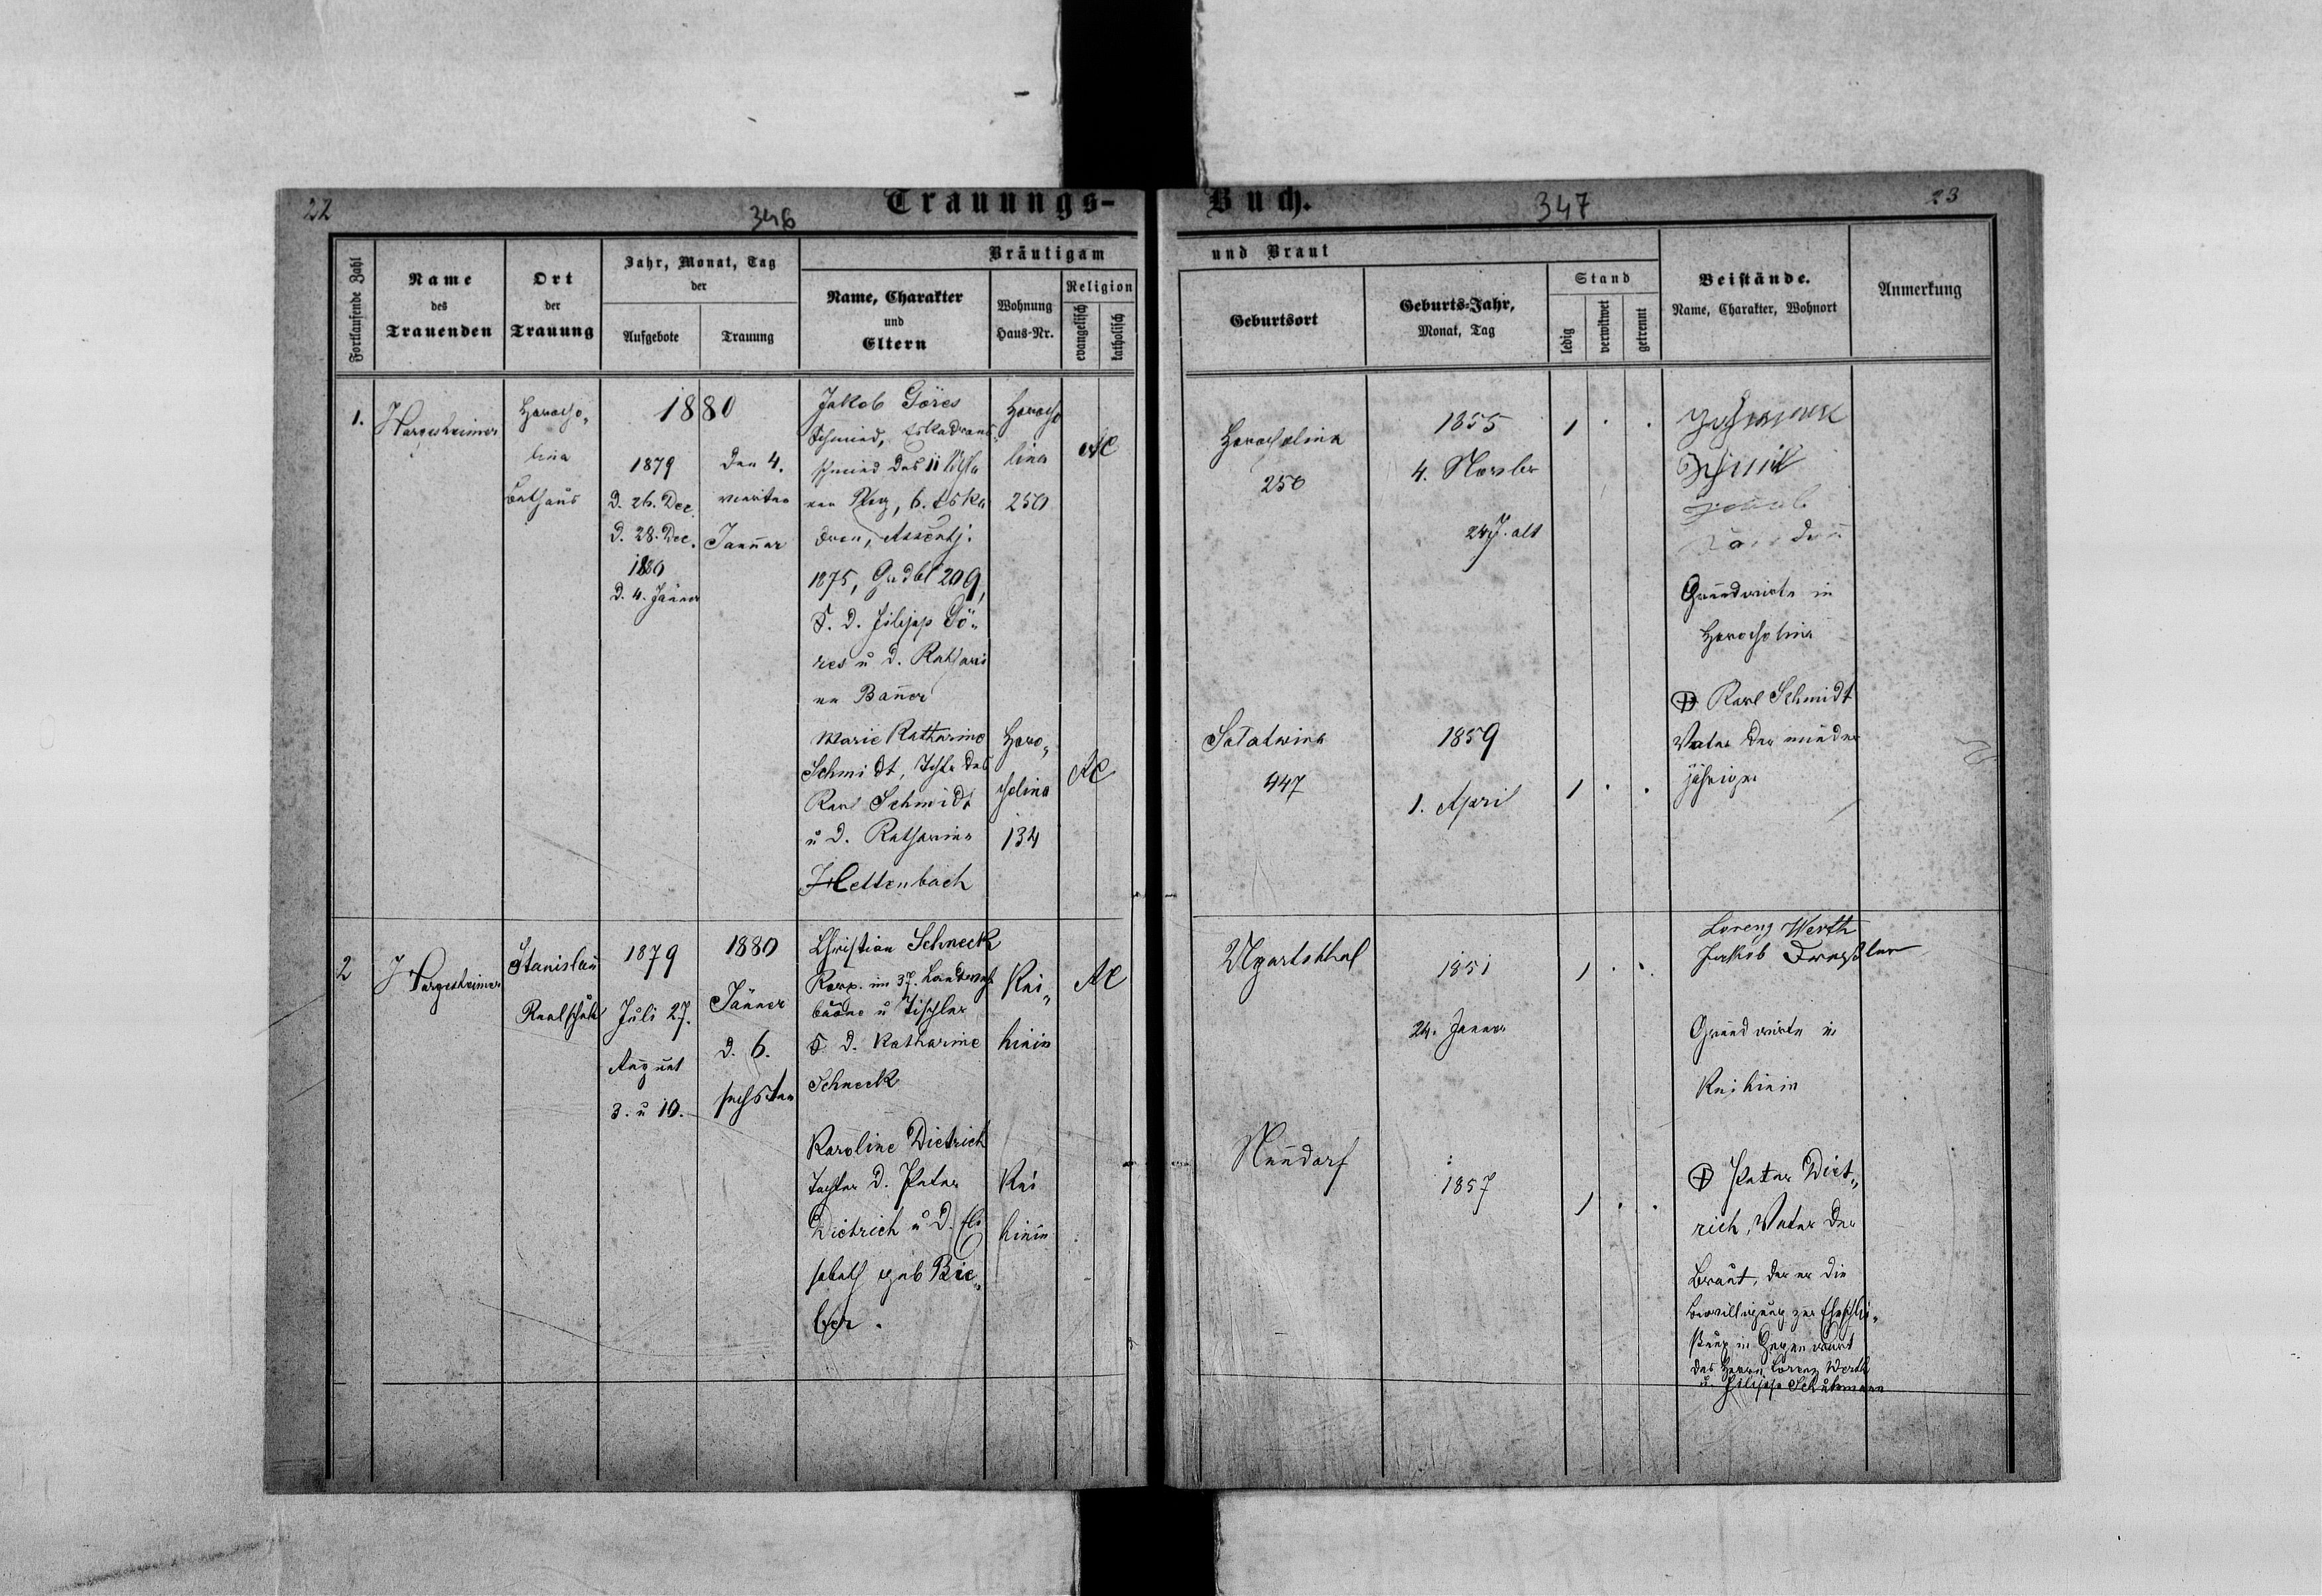 22
346
Trauungs-
Buch.
347
23
Fortlaufende Zahl
Name
des
Trauenden
Ort
der
Trauung
Jahr, Monat, Tag
der
Aufgebote
Trauung
Bräutigam
Name, Charakter
und
Eltern
Wohnung
Haus-Nr.
Religion
evangelisch
katholisch
und Braut
Geburtsort
Geburts-Jahr,
Monat, Tag
Stand
ledig
verwitwet
getrennt
Beistände.
Name, Charakter, Wohnort
Anmerkung
1.
Hargesheimer
Horocho„
lina
Bethaus
1880
1879
D. 26. Dec.
D. 28. Dec.
1880
D. 4. Jänner
Den 4.
vierten
Jannar
Jakob Göres
Schmied, Eskadrons
schmied des 11
6. Eska
dron, Assentj.
1875, Grdbl 209,
S. D. Filipp Gö„
res u D. Kathari
na Bañer
Horocho
lina
250
AC
Horocholina
250
1855
4. Novbr
24 J. alt
1
Grundwirte in
Horocholina
Marie Katharine
Schmidt, Tchtr des
Karl Schmidt
u D. Katharina
Hettenbach
Horo„
cholina
134
AC
Solotwina
447
1859
1. April
1
Karl Schmidt
Vater der minder
jährigen
2
J Hargesheimer
Stanislau
Realschule
1879
Juli 27.
August
3. u 10.
1880
Jänner
D. 6.
sechsten
Christian Schneck
Korp. im 37. Landwehr
baone u Tischler
S. D. Katharine
Schneck
Kni„
hinin
AC
Ugartsthal
1851
24. Janner
1
Lorenz Werth
Jakob Drechsler
Grundwirte in
Knihinin
Karoline Dietrich
Tochter D. Peter
Dietrich u D. Eli
sabeth geb Bie„
ber.
Kni
hinin
Neudorf
1857
1
Peter Diet„
rich, Vater der
Braut, der er die
Bewilligung zur Eheschli„
ßung in Gegenwart
des Herrn Lorenz Werth
u. Filipp Schuhmann